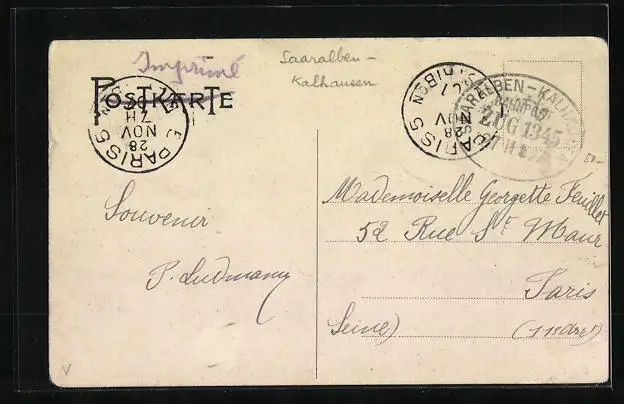 Imprimé
Saaralben-
Kalhausen
POSTKARTE
PARIS 5
7H
28
NOV
PARIS 5
28
NOV
SAARALBEN-KALHAUSEN
BAHNPOST
ZUG 1345
50-
Mademoiselle Georgette Feuillet
52 Rue St Maur
Souvenir
P. Ludmann
Paris
Seine)
(11e Arrt)
V